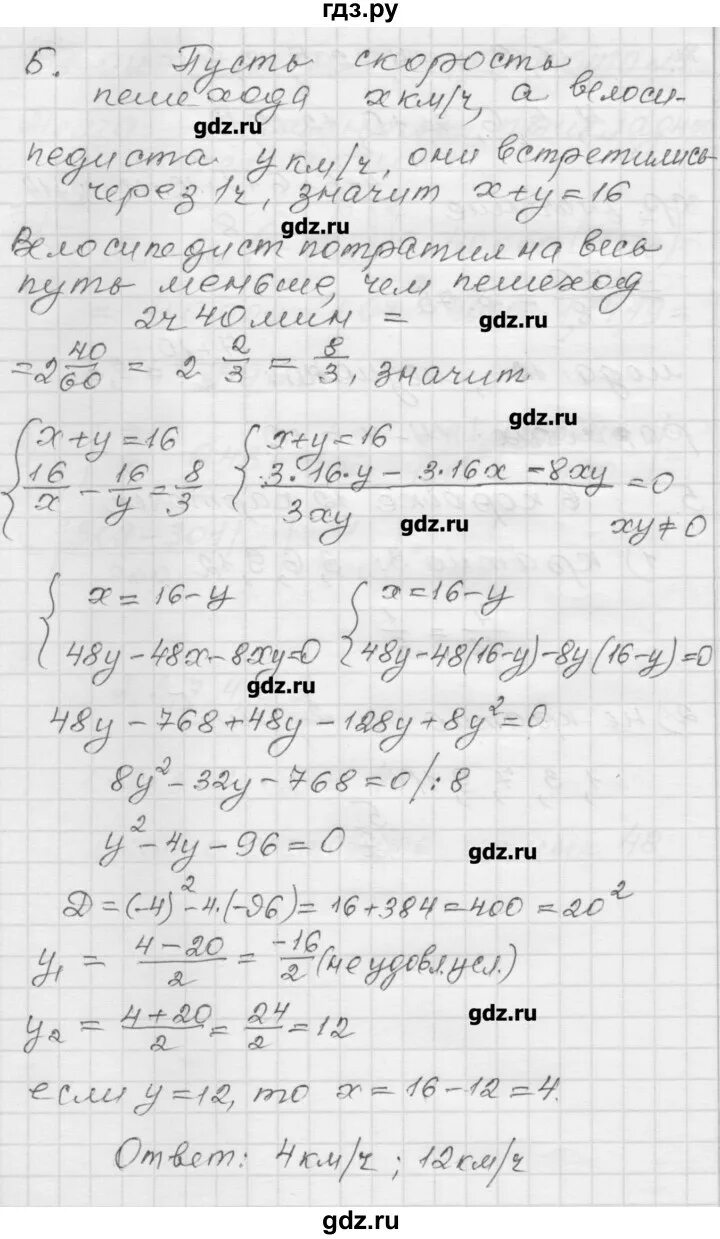 гдз.ру
5. Пусть скорость
пешехода x км/ч, а велоси-
gdz.ru
педиста y км/ч, они встретились
через 1ч, значит x+y=16
gdz.ru
Велосипедист потратил на весь
путь меньше, чем пешеход
2ч 40мин =
gdz.ru
=2 40/60 = 2 2/3 = 8/3, значит
gdz.ru
{ x+y=16 { x+y=16
16/x - 16/y = 8/3 (3·16·y - 3·16x - 8xy)/3xy = 0
gdz.ru
xy≠0
{ x=16-y { x=16-y
48y-48x-8xy=0 48y-48(16-y)-8y(16-y)=0
gdz.ru
48y-768+48y-128y+8y²=0
8y²-32y-768=0/:8
y²-4y-96=0
gdz.ru
D=(-4)²-4·(-96)=16+384=400=20²
y₁ = (4-20)/2 = -16/2 (не удовл.усл.)
gdz.ru
y₂ = (4+20)/2 = 24/2 = 12
если y=12, то x=16-12=4.
Ответ: 4км/ч; 12км/ч
gdz.ru